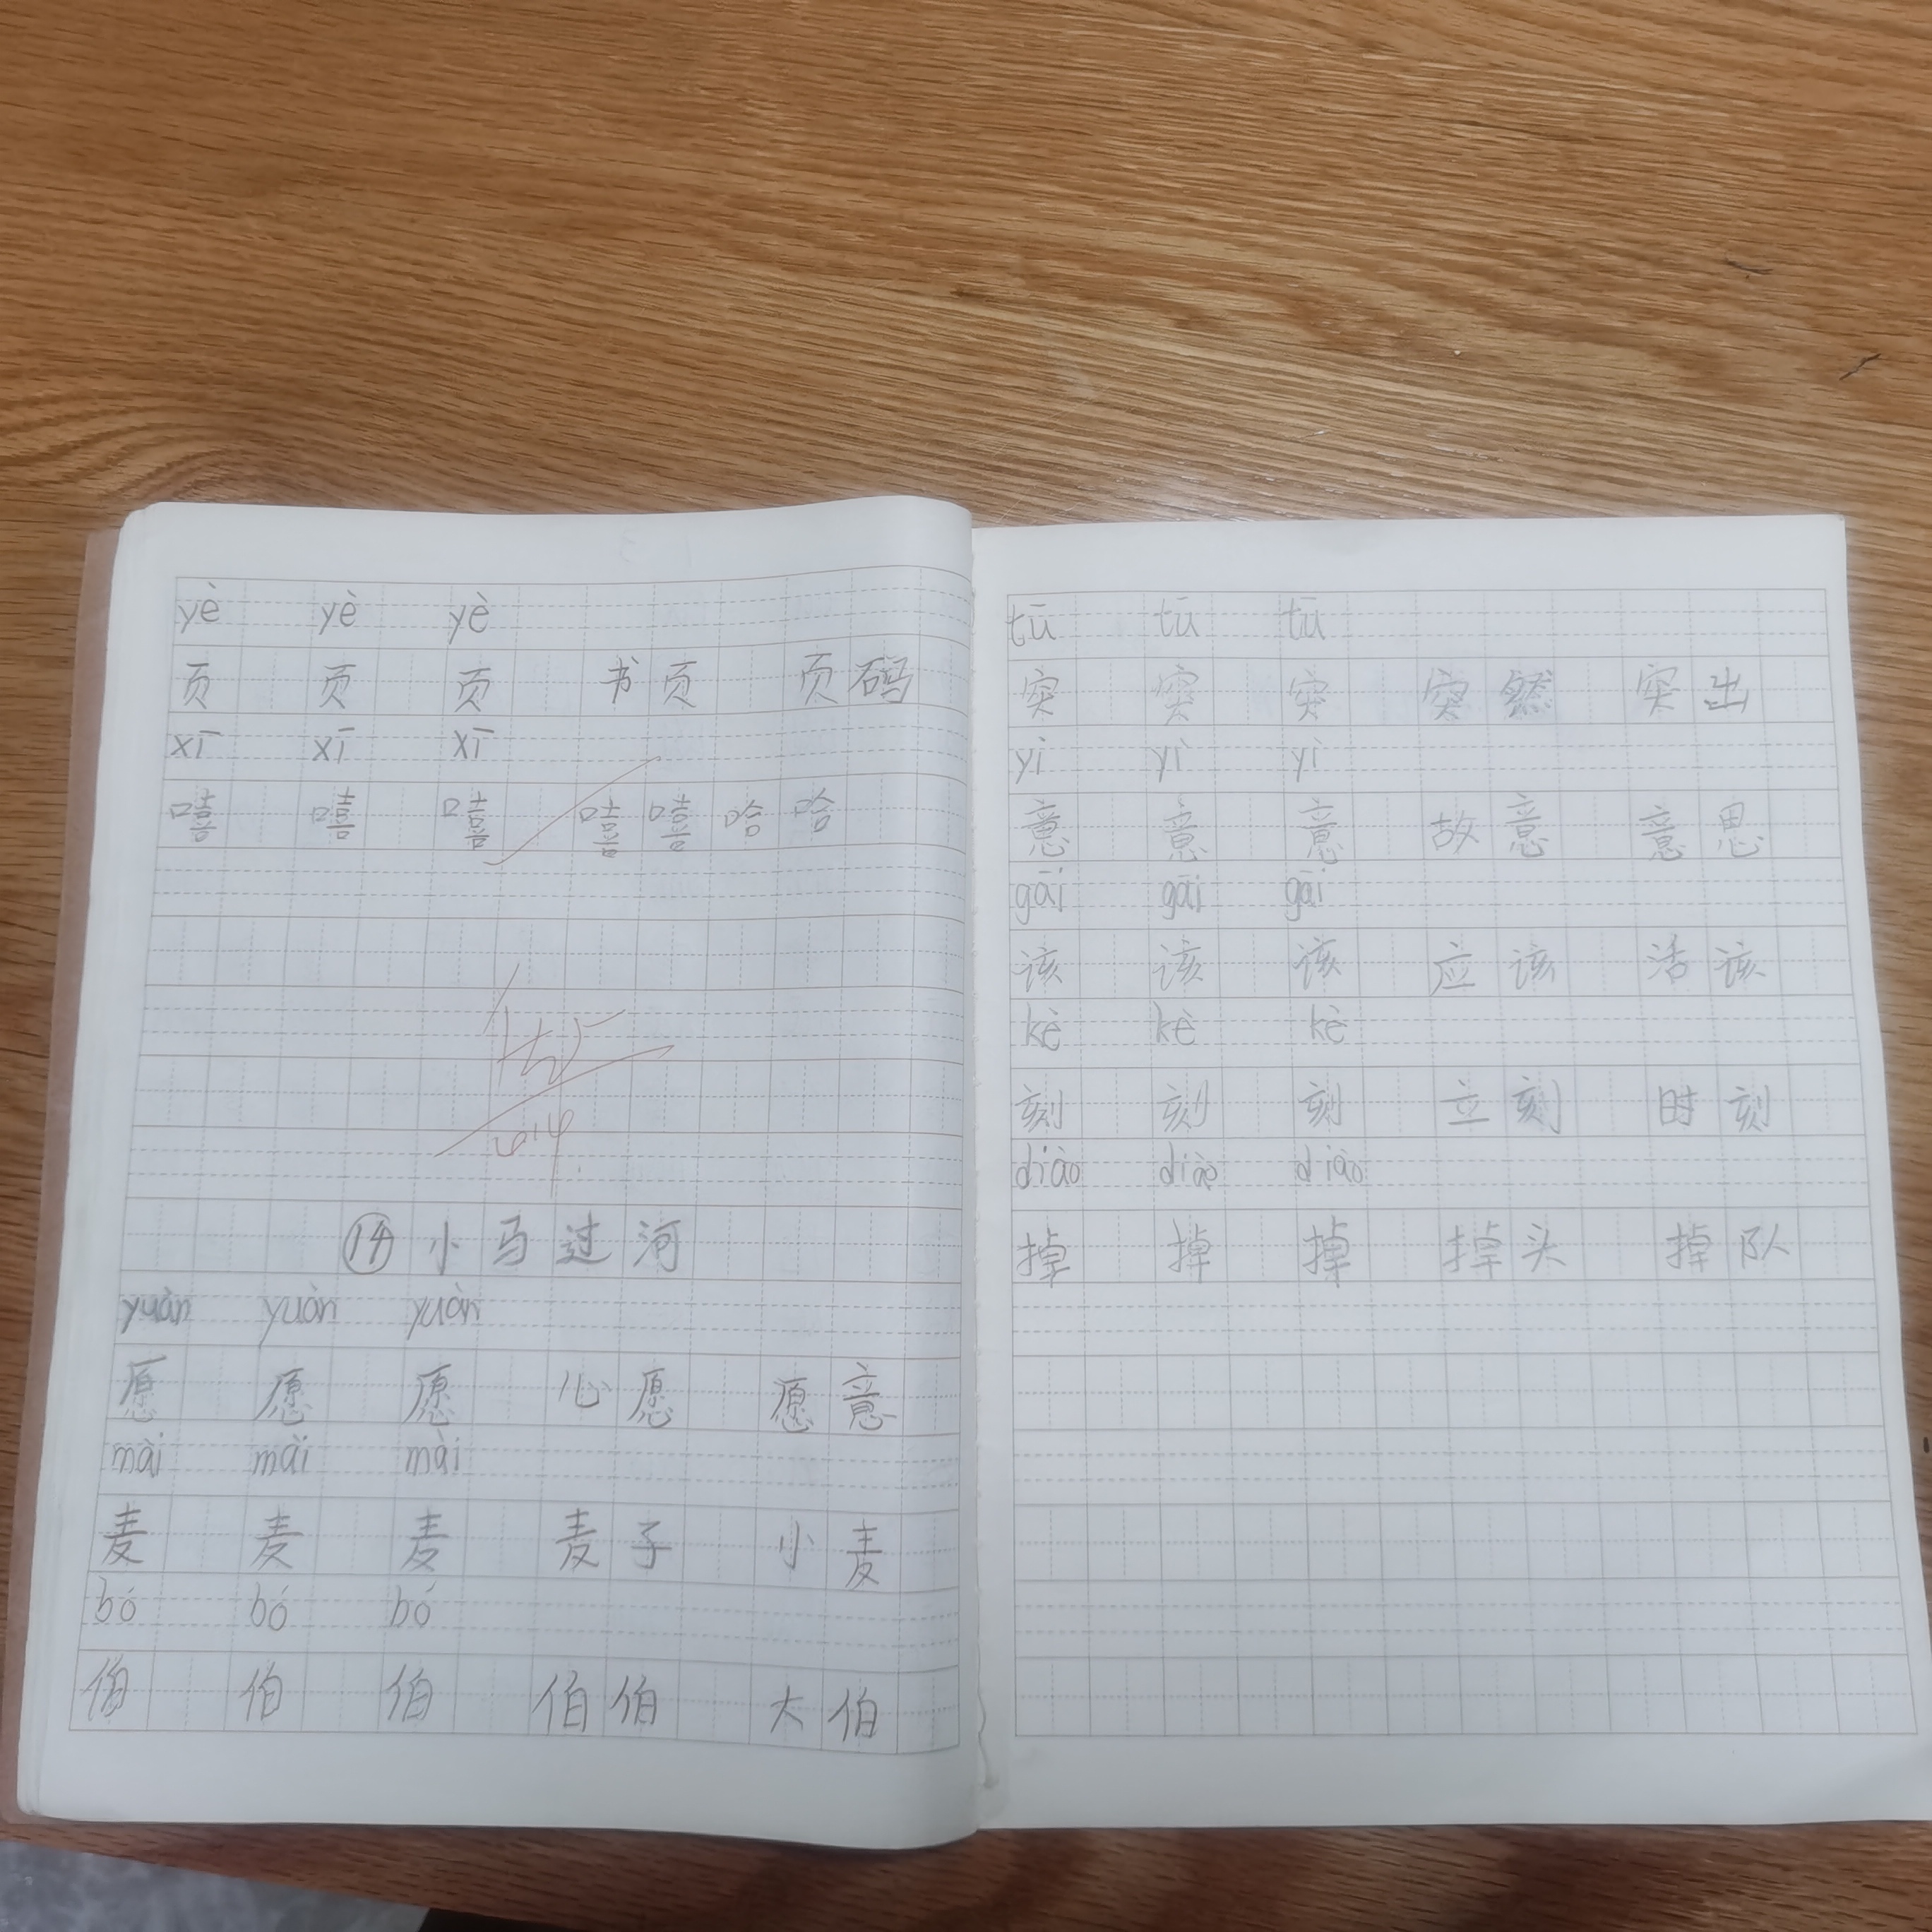 yè yè yè
页 页 页 书页 页码
xī xī xī
嘻 嘻 嘻 嘻嘻哈哈
6.14.
⑭ 小马过河
yuàn yuàn yuàn
愿 愿 愿 心愿 愿意
mài mài mài
麦 麦 麦 麦子 小麦
bó bó bó
伯 伯 伯 伯伯 大伯
tū tū tū
突 突 突 突然 突出
yì yì yì
意 意 意 故意 意思
gāi gāi gāi
该 该 该 应该 活该
kè kè kè
刻 刻 刻 立刻 时刻
diào diào diào
掉 掉 掉 掉头 掉队